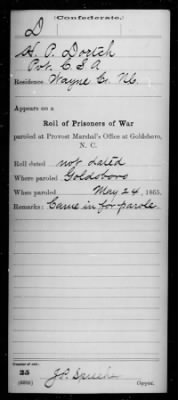 (Confederate.)
D
H. P. Dortch
Pvt. C S A
Residence Wayne Co. N.C.
Appears on a
Roll of Prisoners of War
paroled at Provost Marshal's Office at Goldsboro,
N. C.
Roll dated not dated
Where paroled Goldsboro
When paroled May 24, 1865.
Remarks: Came in for parole
Number of roll:
25
Copyist.